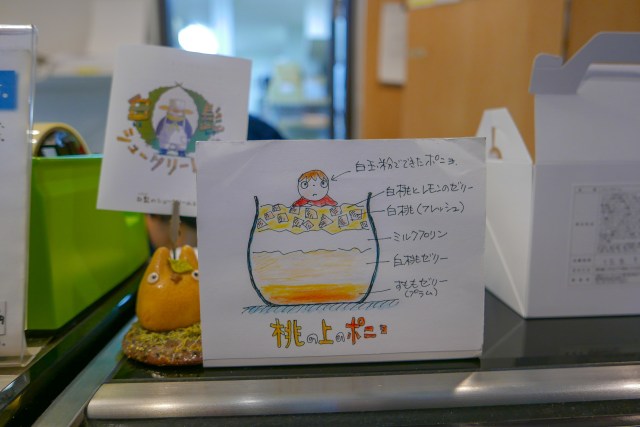 白玉粉でできたポニョ
白桃とレモンのゼリー
白桃(フレッシュ)
ミルクプリン
白桃ゼリー
すももゼリー
(プラム)
桃の上のポニョ
シュークリーム